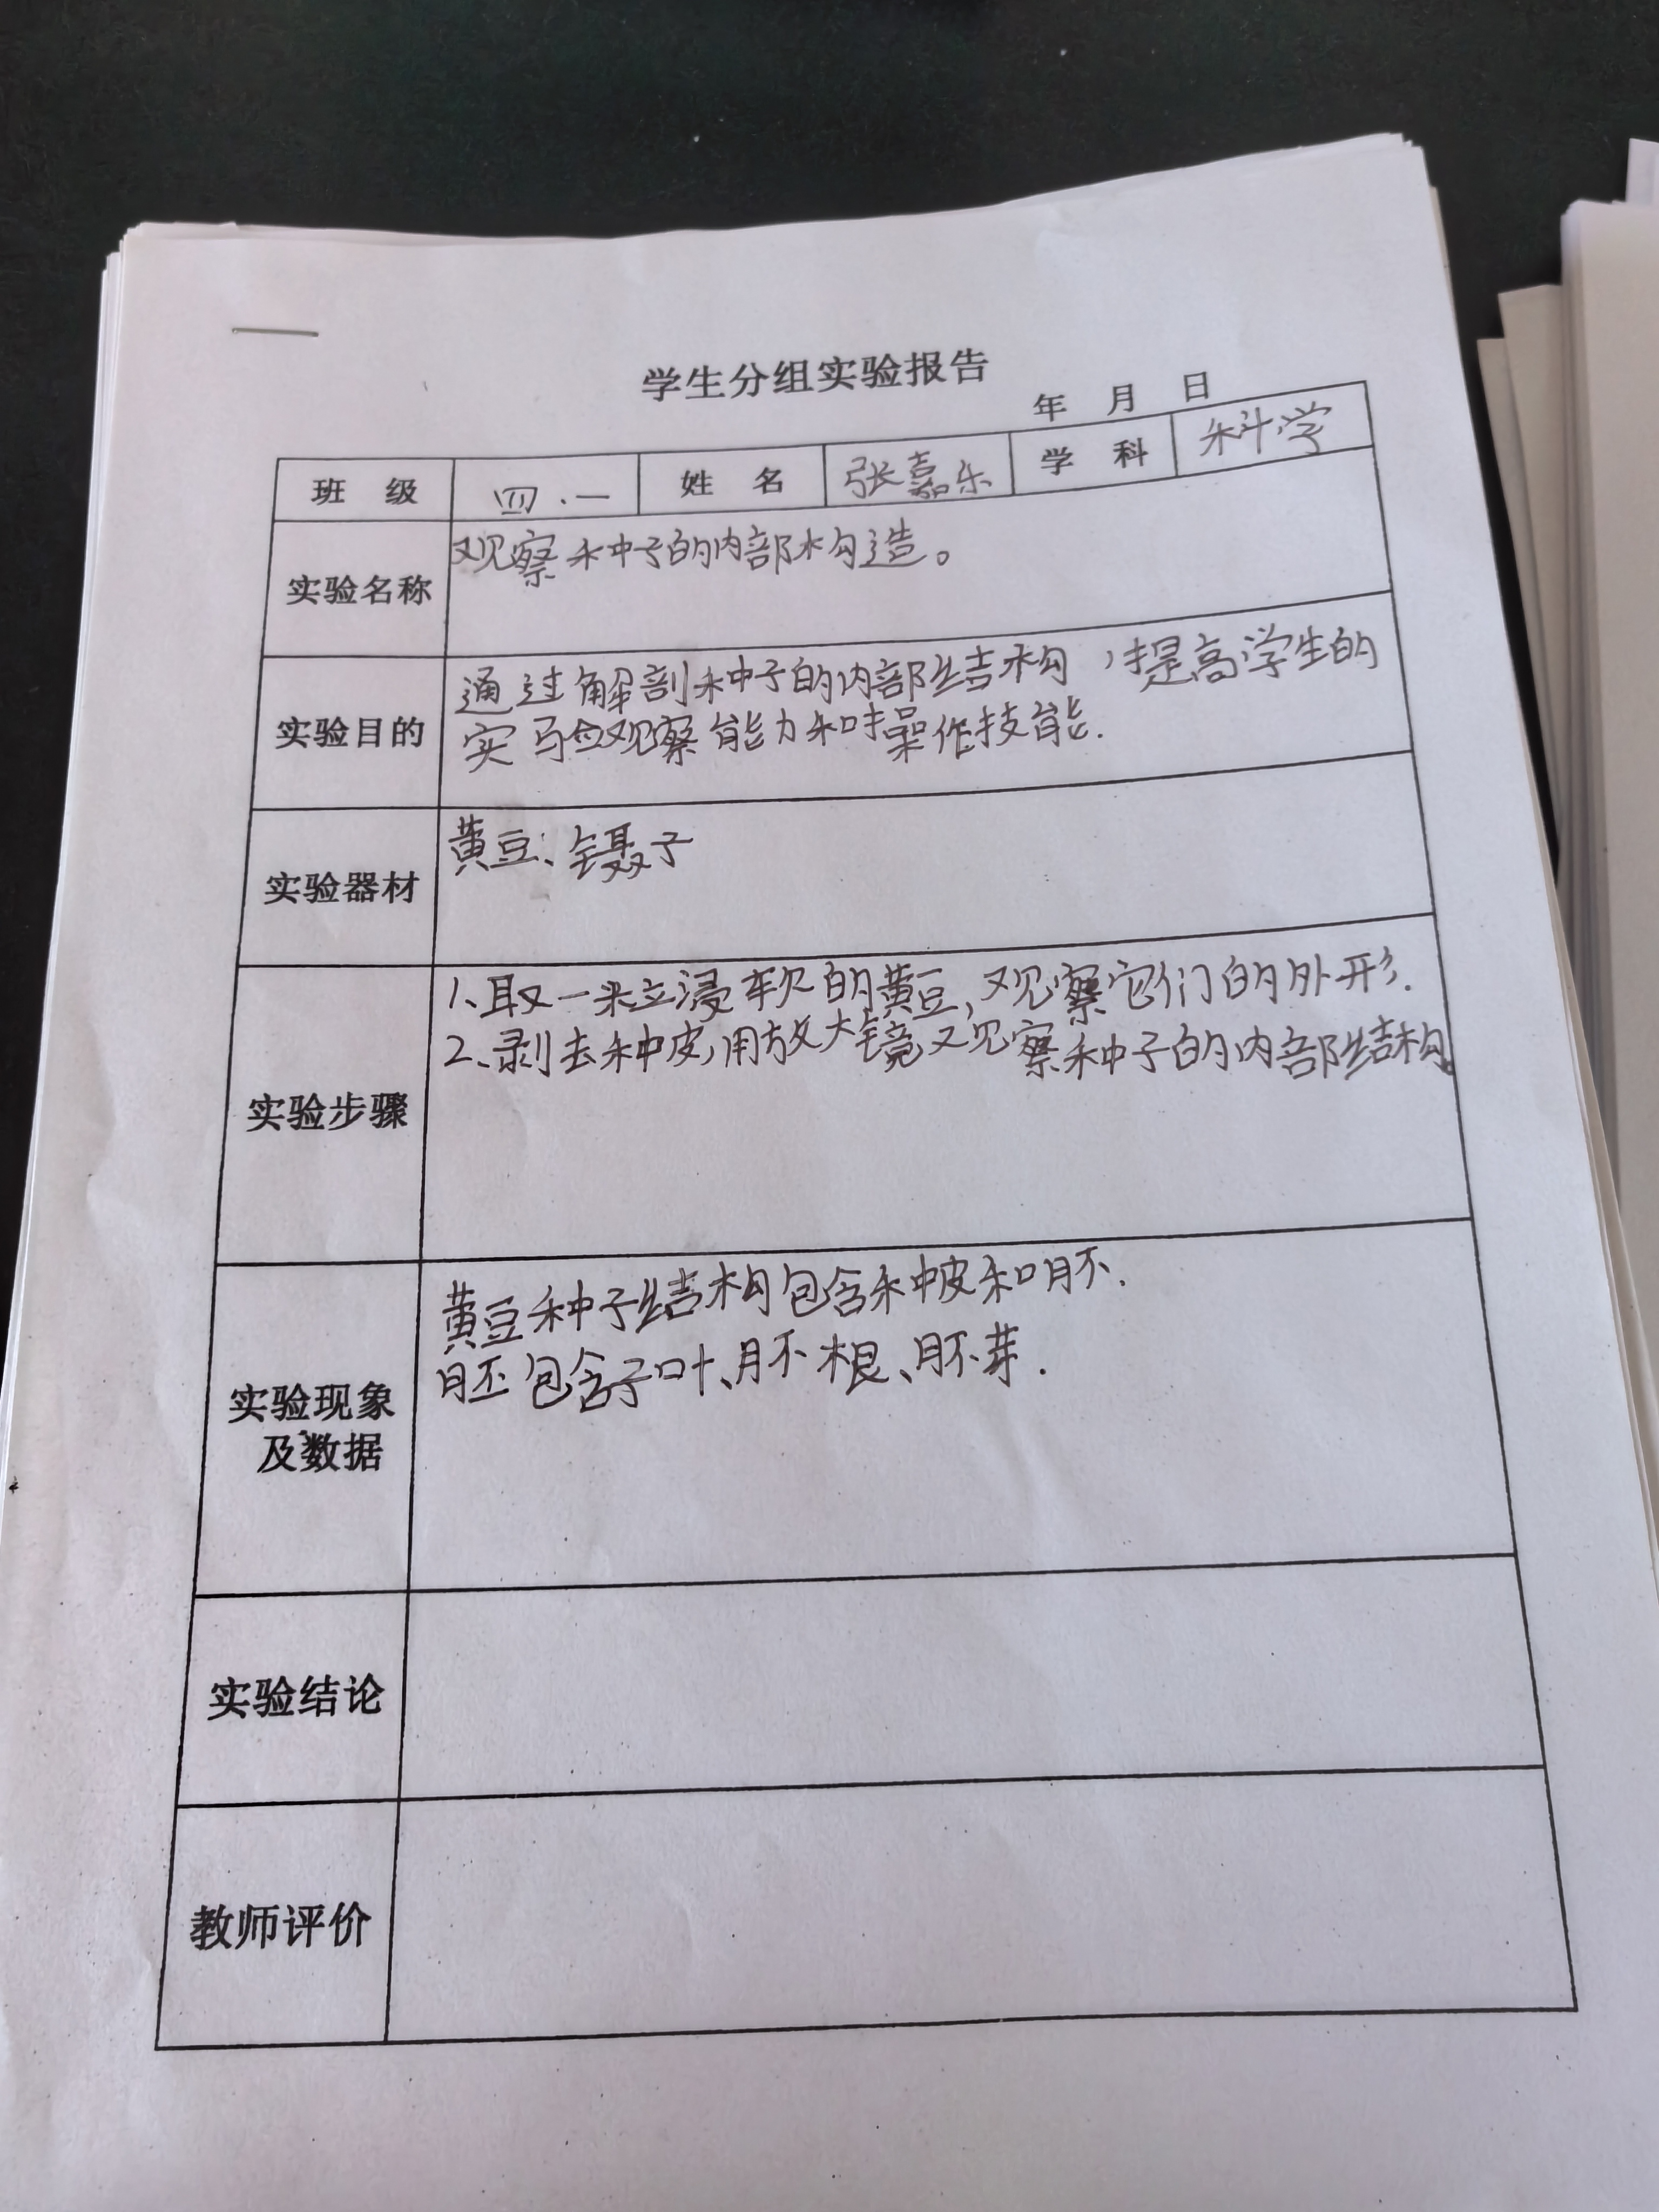 学生分组实验报告
年 月 日
班 级 四.一 姓 名 张嘉乐 学 科 科学
实验名称 观察种子的内部构造。
实验目的 通过解剖种子的内部结构，提高学生的
实验观察能力和操作技能.
实验器材 黄豆、镊子
实验步骤 1、取一粒浸软的黄豆,观察它们的外形.
2、剥去种皮,用放大镜观察种子的内部结构。
实验现象
及数据
黄豆种子结构包含种皮和胚.
胚包含子叶、胚根、胚芽.
实验结论
教师评价